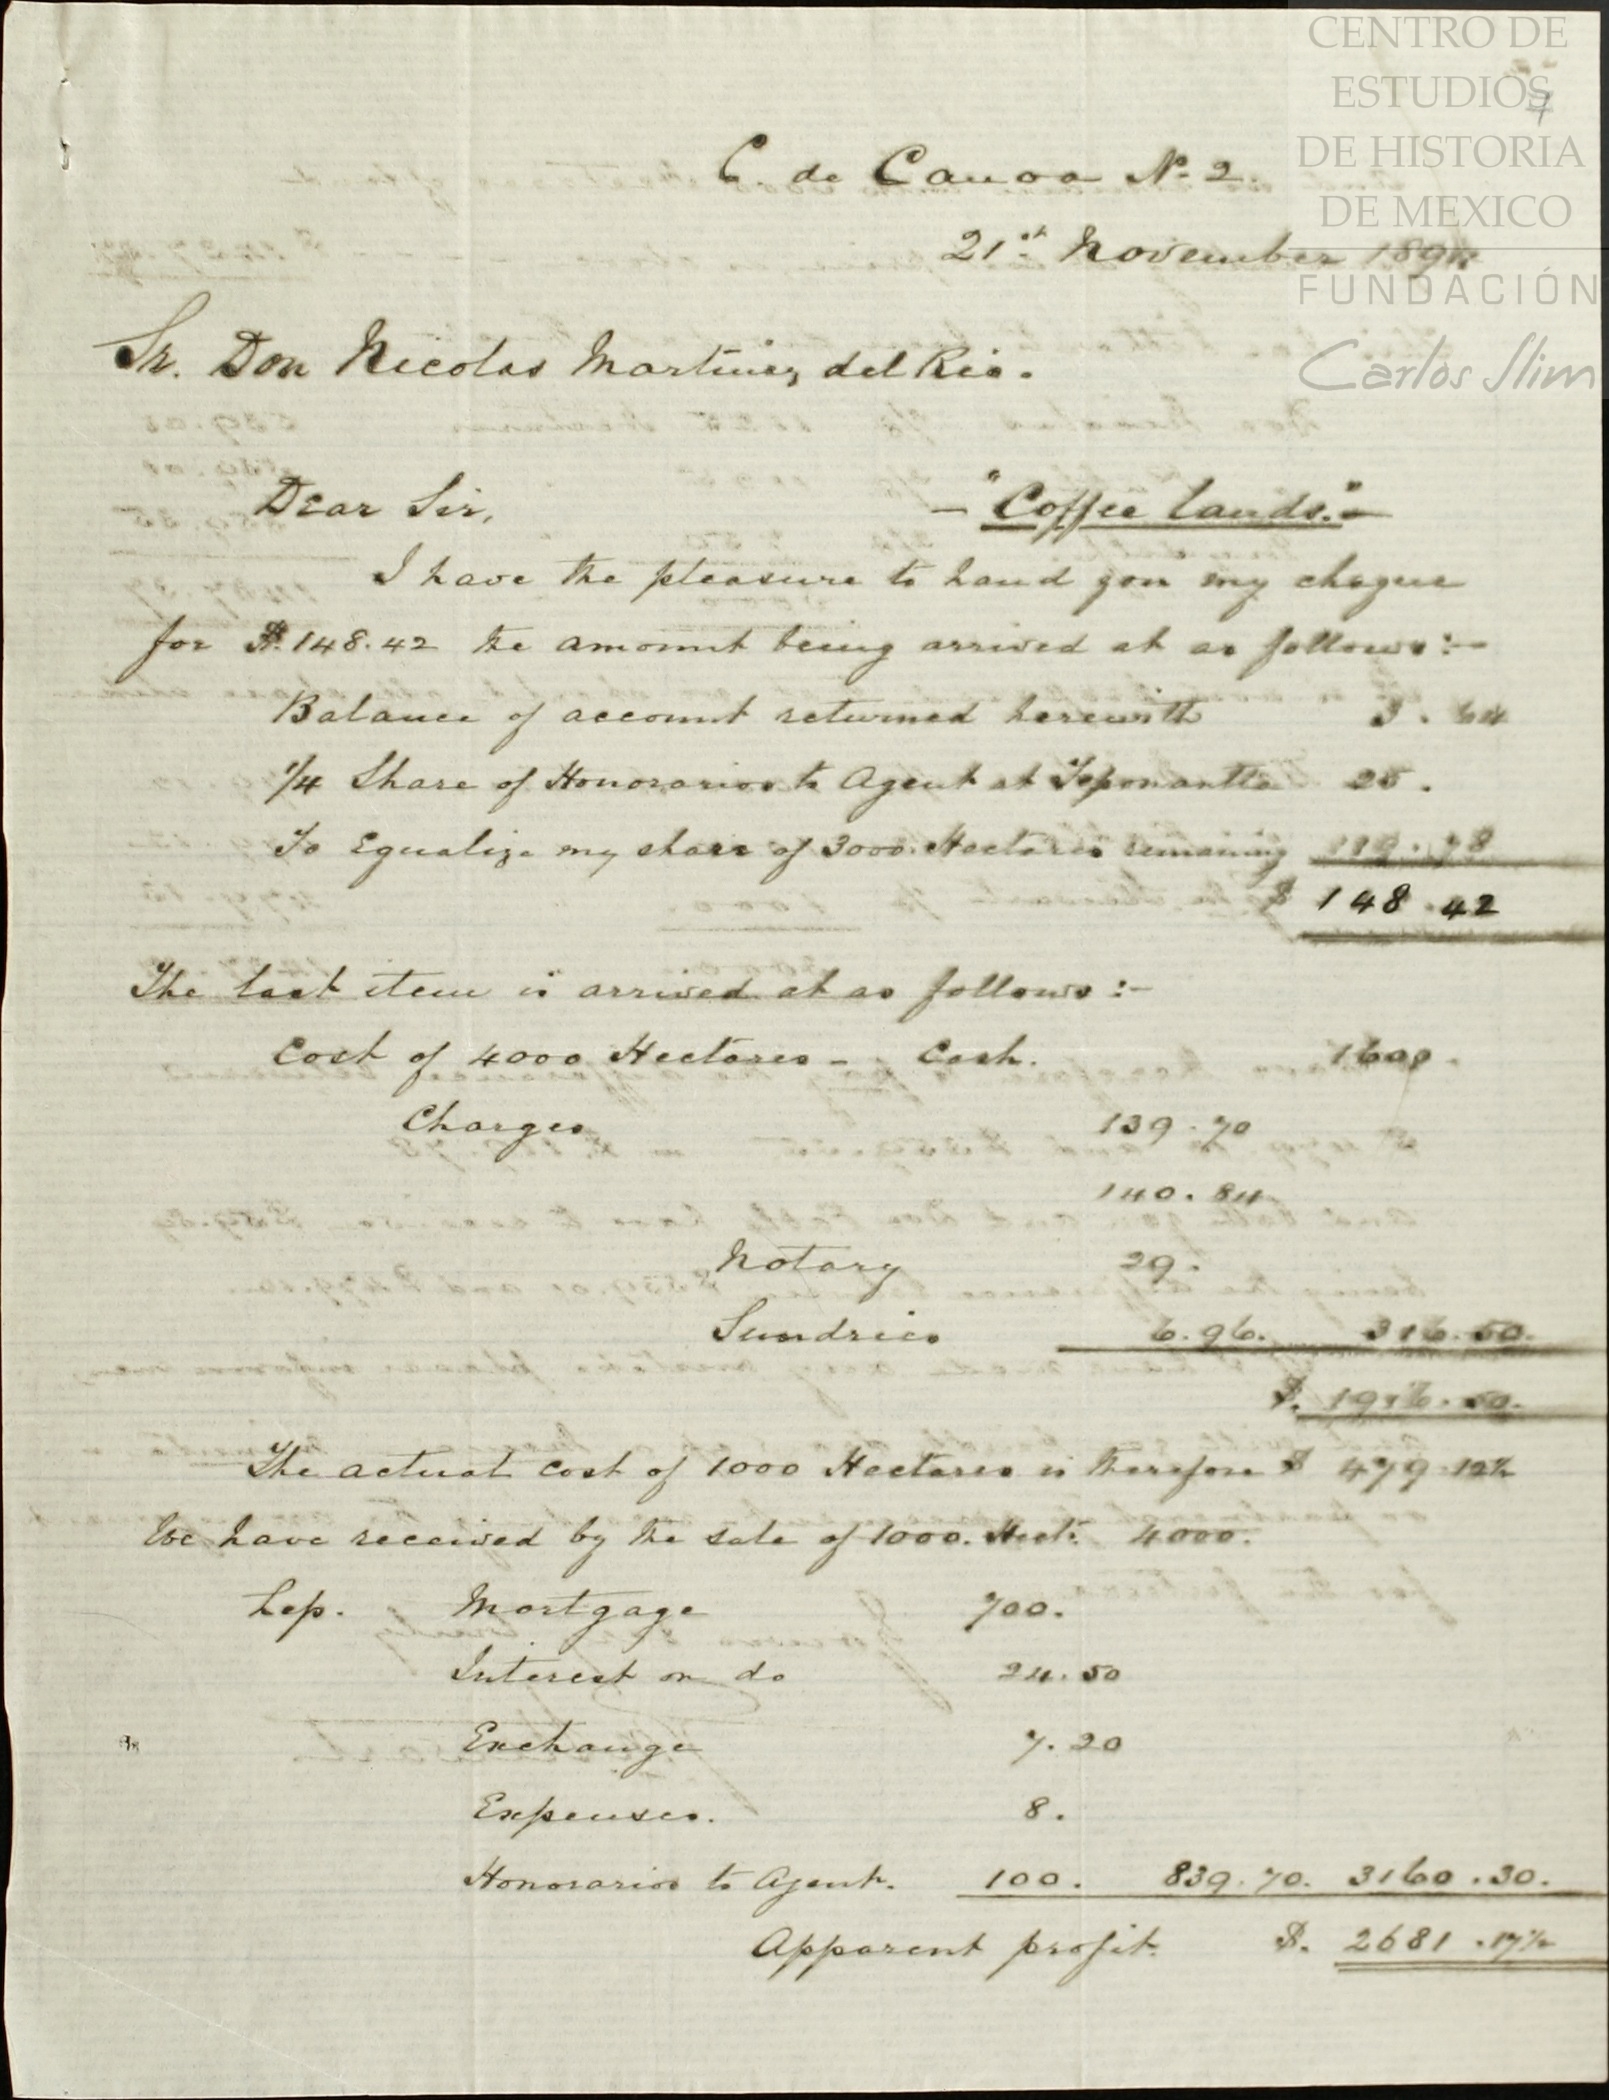 CENTRO DE
ESTUDIOS
DE HISTORIA
DE MEXICO
FUNDACIÓN
Carlos Slim
C. de Canoa No. 2.
21st November 189
Sr. Don Nicolas Martinez del Rio.
Dear Sir,
— "Coffee lands." —
I have the pleasure to hand you my cheque
for $.148.42 the amount being arrived at as follows:—
Balance of account returned herewith 3.64
1/4 Share of Honorarios to Agent at 25.
To Equalize my share of 3000 Hectares remaining 119.78
$ 148.42
The last item is arrived at as follows:—
Cost of 4000 Hectares — Cash. 1600.
Charges 139.70
140.84
Notary 29.
Sundries 6.96. 316.50.
$. 1916.50.
The actual cost of 1000 Hectares is therefore $ 479.12½
We have received by the sale of 1000. Hects. 4000.
Less. Mortgage 700.
Interest on do 24.50
Exchange 7.20
Expenses. 8.
Honorarios to Agent. 100. 839.70. 3160.30.
Apparent profit. $. 2681.17½